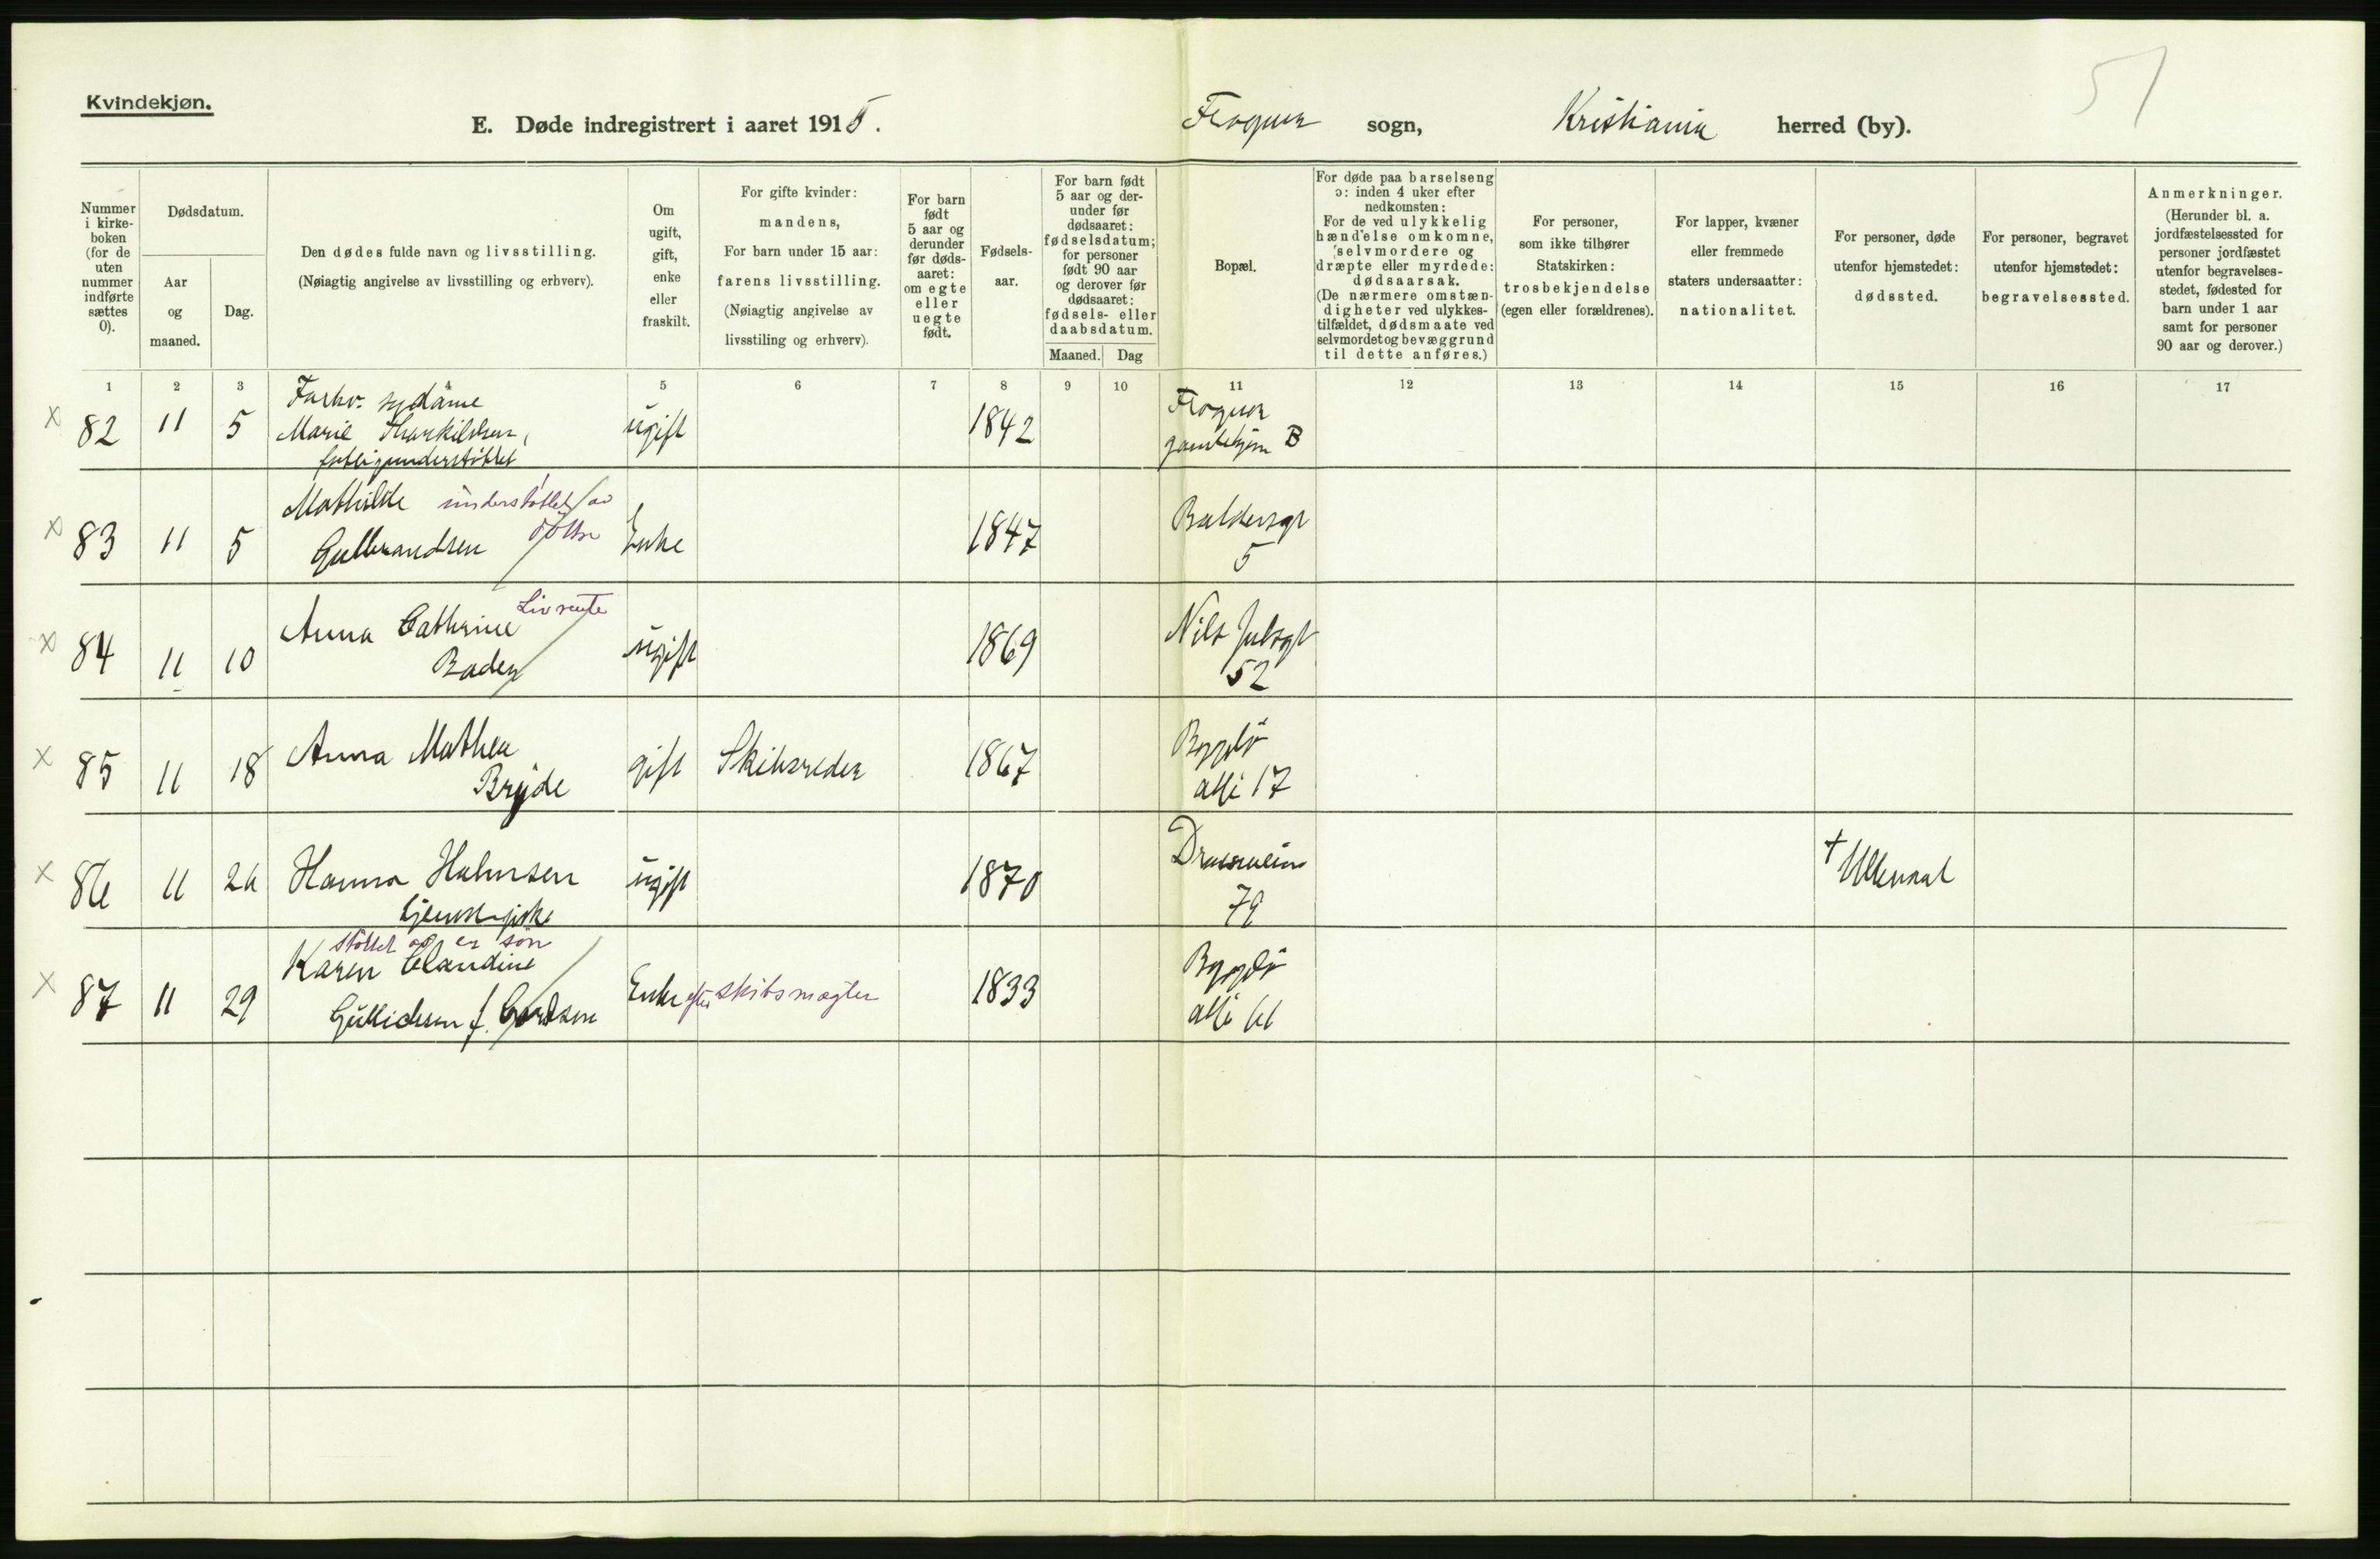 51
Kvindekjøn.
E. Døde indregistrert i aaret 1915. Frogner sogn, Kristiania herred (by).
Nummer i kirke-boken (for de uten nummer indførte sættes 0).
Dødsdatum.
Aar og maaned.
Dag.
Den dødes fulde navn og livsstilling.
(Nøiagtig angivelse av livsstilling og erhverv).
Om ugift, gift, enke eller fraskilt.
For gifte kvinder:
mandens,
For barn under 15 aar:
farens livsstilling.
(Nøiagtig angivelse av
livsstiling og erhverv).
For barn født 5 aar og derunder før døds-aaret: om egte eller uegte født.
Fødsels-aar.
For barn født 5 aar og der-under før dødsaaret: fødselsdatum; for personer født 90 aar og derover før dødsaaret: fødsels- eller daabsdatum.
Maaned. Dag
Bopæl.
For døde paa barselseng ɔ: inden 4 uker efter nedkomsten:
For de ved ulykkelig hændelse omkomne, selvmordere og dræpte eller myrdede: dødsaarsak.
(De nærmere omstæn-digheter ved ulykkes-tilfældet, dødsmaate ved selvmordet og bevæggrund til dette anføres.)
For personer,
som ikke tilhører
Statskirken:
trosbekjendelse
(egen eller forældrenes).
For lapper, kvæner
eller fremmede
staters undersaatter:
nationalitet.
For personer, døde
utenfor hjemstedet:
dødssted.
For personer, begravet
utenfor hjemstedet:
begravelsessted.
Anmerkninger.
(Herunder bl. a. jordfæstelsessted for personer jordfæstet utenfor begravelses-stedet, fødested for barn under 1 aar samt for personer 90 aar og derover.)
1 2 3 4 5 6 7 8 9 10 11 12 13 14 15 16 17
x 82 11 5 Forhv. sydame
Marie Thorkildsen,
fattigunderstøttet
ugift 1842 Frogner
gamlehjem B
x 83 11 5 Mathilde understøttet av
Gulbrandsen
Enke 1847 Baldersgt
5
x 84 11 10 Anna Cathrine Livrente
Baden
ugift 1869 Nils Julsgt
52
x 85 11 18 Anna Mathea
Bryde
gift Skibsreder 1867 Bygdø
alle 17
x 86 11 26 Hanna Halvorsen
ugift 1870 Drammensv
79
+ Ullevaal
x 87 11 29 støttet av en søn
Karen Claudine
f.
Enke efter skibsmægler 1833 Bygdø
alle 61